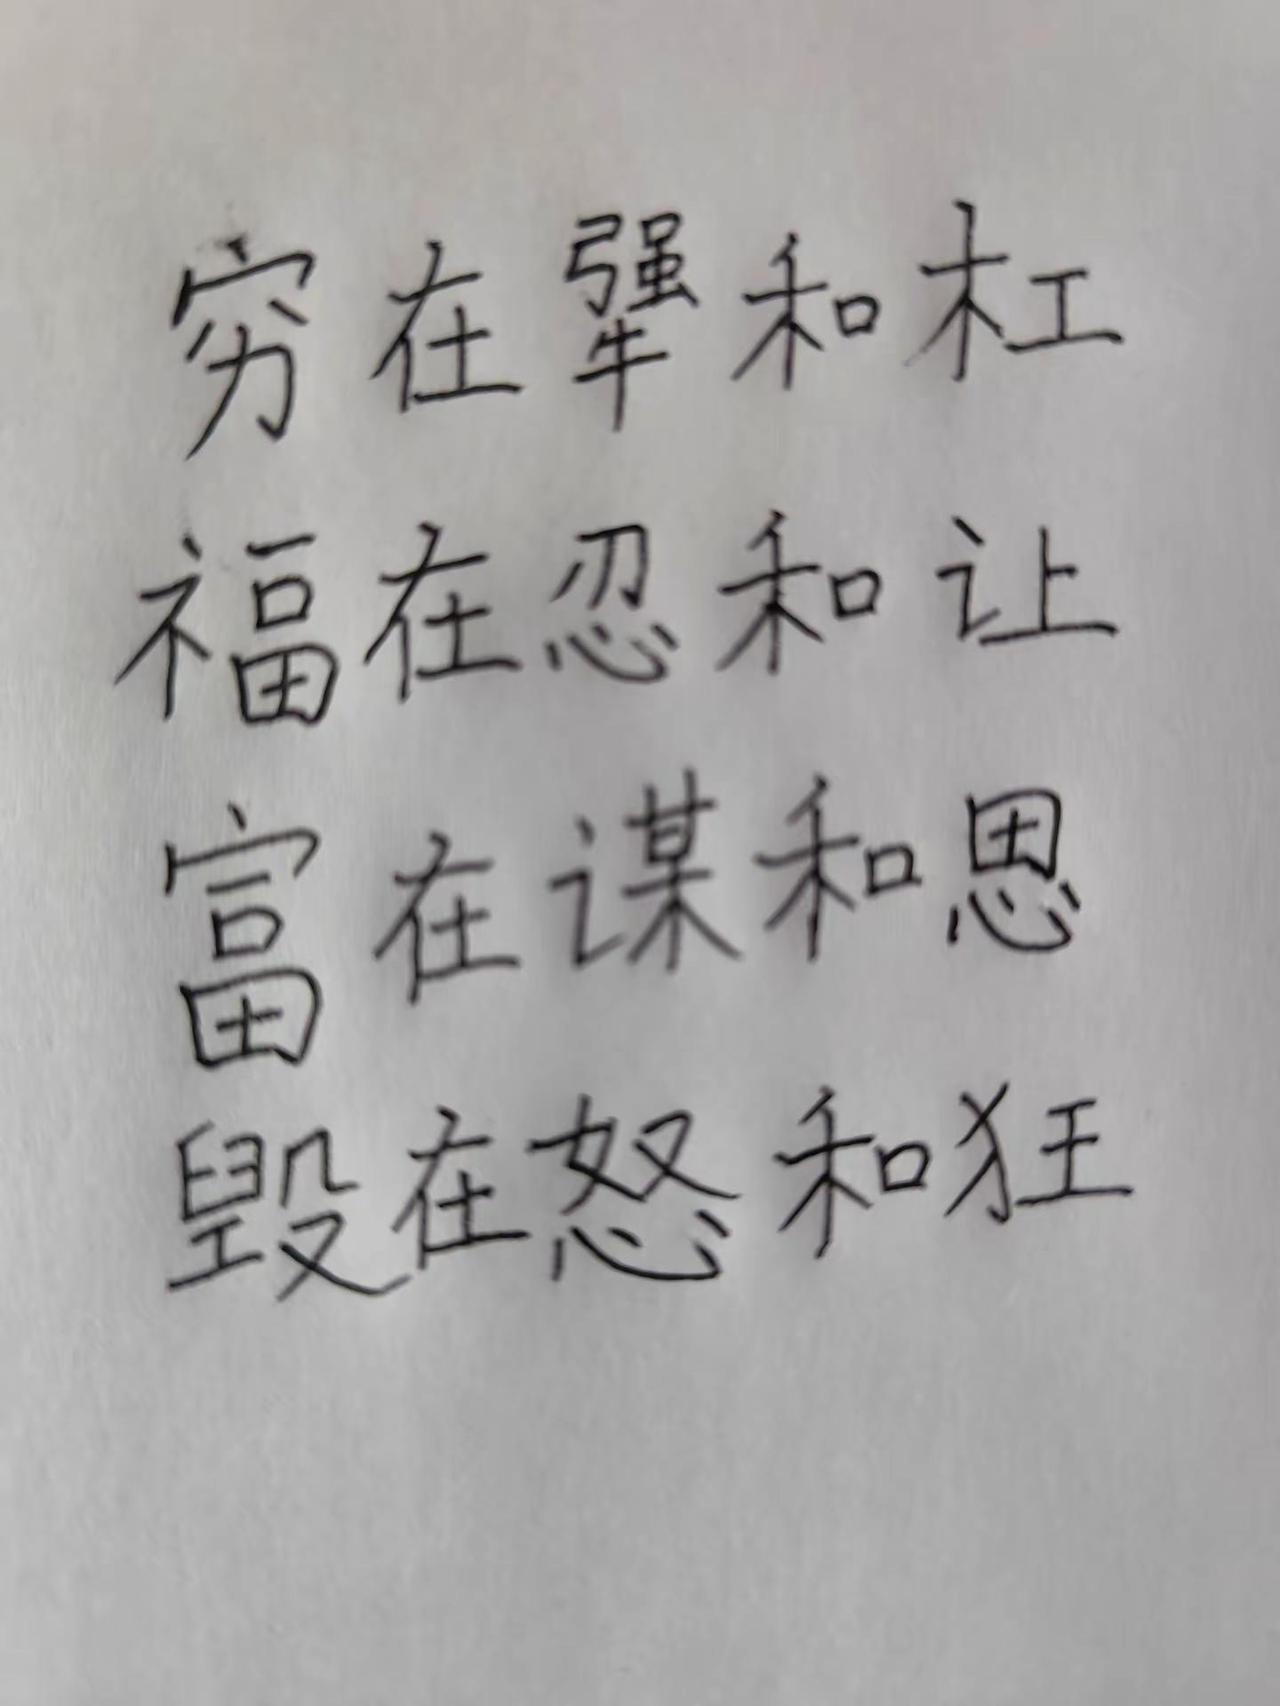 穷在犟和杠
福在忍和让
富在谋和恩
毁在怒和狂